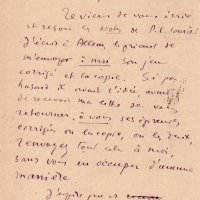 Je viens de vous écrire
et reçois les Nots de P. L. Courier
J'écris à Allem, le priant de
m'envoyer à moi son jeu
corrigé et la copie. Si par
hasard X avait l'idée, avant
de recevoir ma lettre de vous
retourner, à vous ses épreuves
corrigées ou la copie, ou les deux,
renvoyez tout cela à moi,
sans vous en occuper d'aucune
manière.
J'espère que